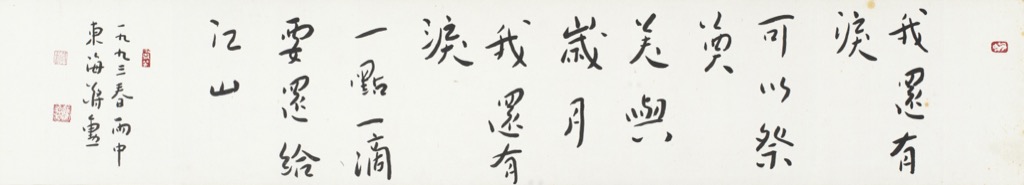 我還有
淚
可以祭
奠
美與
歲月
我還有
淚
一點一滴
要還給
江山
一九九三春雨中
東海蔣勳